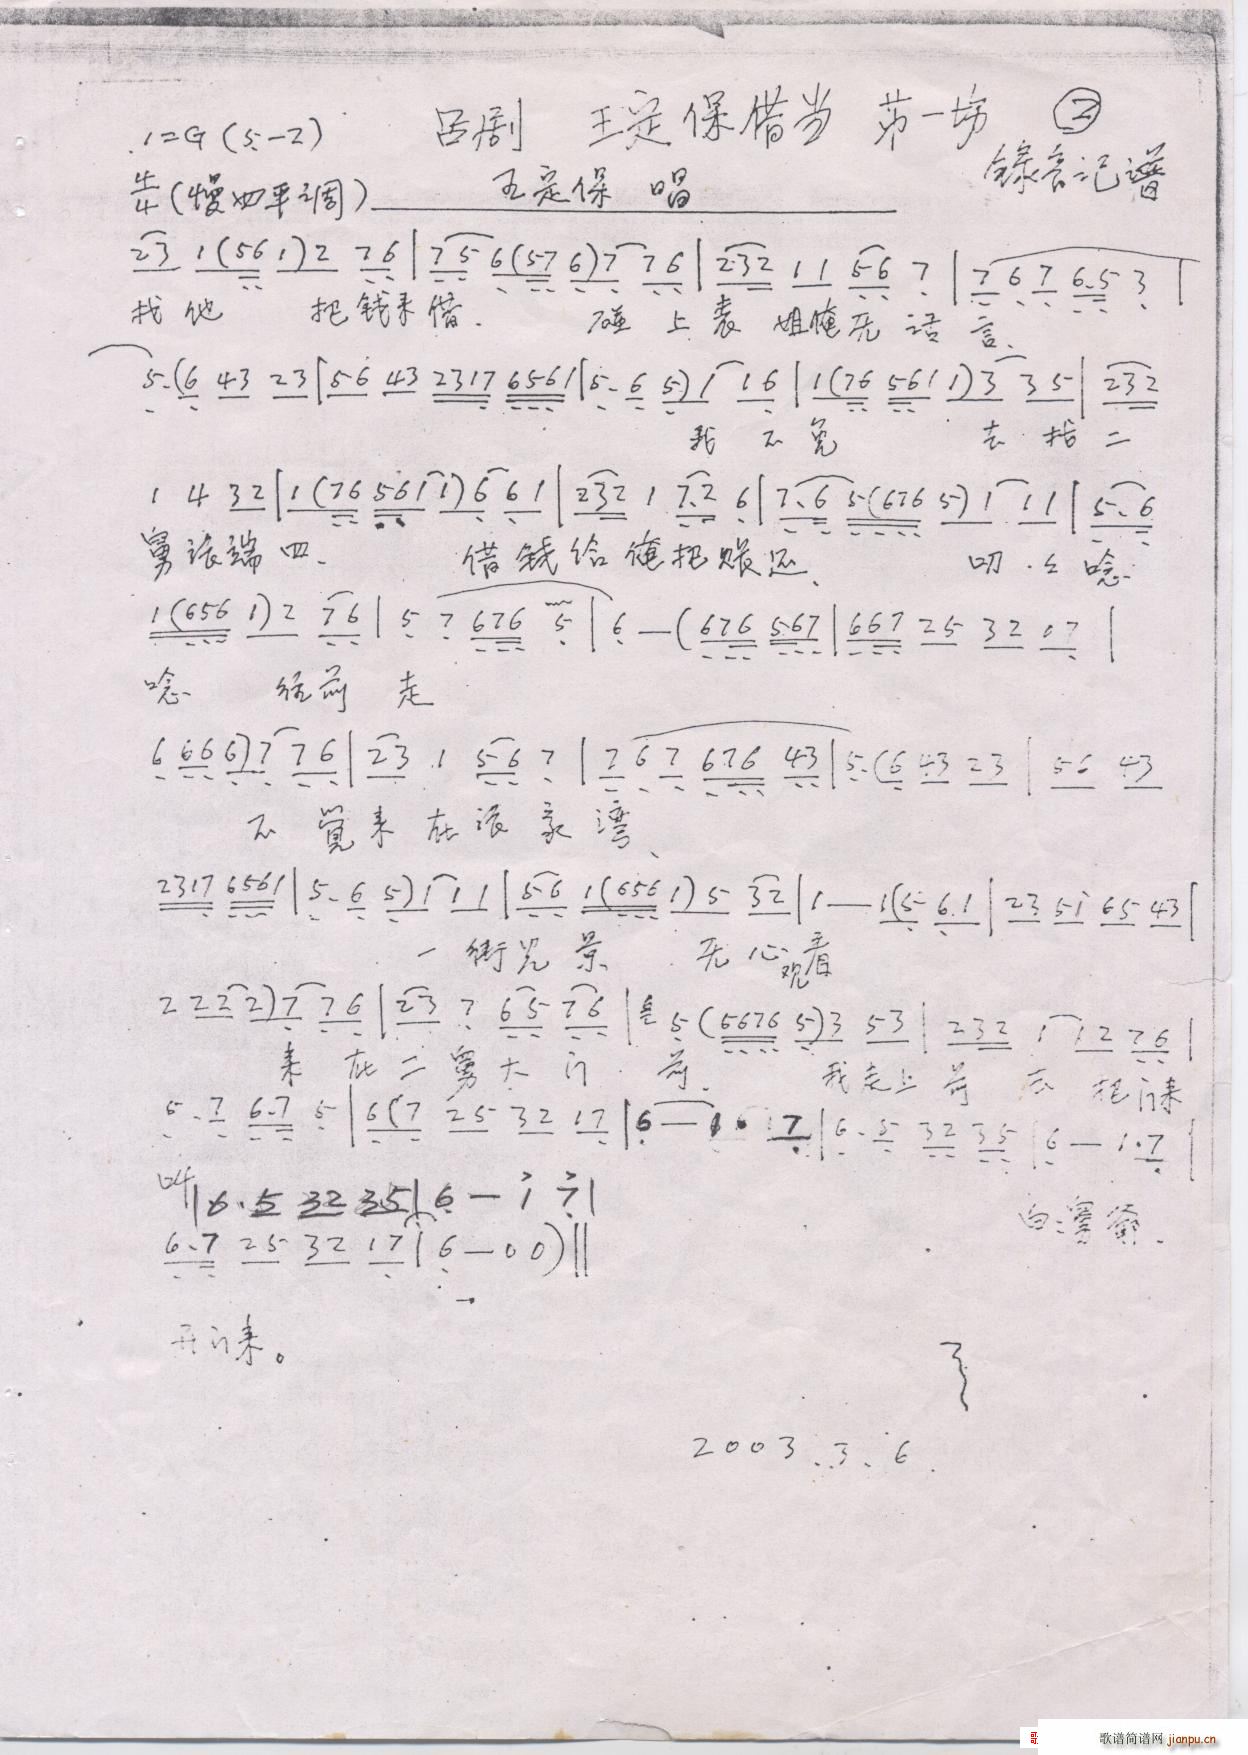 吕剧 王定保借当 第一场 ②
1=G (5-2)
录音记谱
4/4 (慢四平调) 王定保 唱
23 1(561)2 76|75 6(576)7 76|232 11 56 7|767 6.53|
找他 把钱来借. 碰上表姐俺无话言.
5.(6 43 23|56 43 2317 6561|5.6 5)1 16|1(76 5611)3 35|232
我不免 去找二
1 4 32|1(76 5611)6 61|232 1 7.2 6|7.6 5(676 5)1 11|5.6
舅张端四. 借钱给俺把账还. 叨么唸
1(656 1)2 76|5 7 676 5|6—(676 567|667 25 32 17|
唸 往前走
6 66 6)7 76|23 1 56 7|767 676 43|5.(6 43 23|56 43
不觉来在张家湾.
2317 6561|5.6 5)1 11|56 1(656 1)5 32|1—1(5 6.1|23 5i 65 43|
一街光景 无心观看
2 22 2)7 76|23 7 65 76|5(5676 5)3 53|232 1 12 76|
来在二舅大门前. 我走上前去把门来
5.7 6.7 5|6(7 25 32 17|6—1.7|6.5 32 35|6—1.7|
叫|6.5 32 35|6—i 7|
白:舅爷.
6.7 25 32 17|6—00)‖
开门来。
2003.3.6.
歌谱简谱网 jianpu.cn